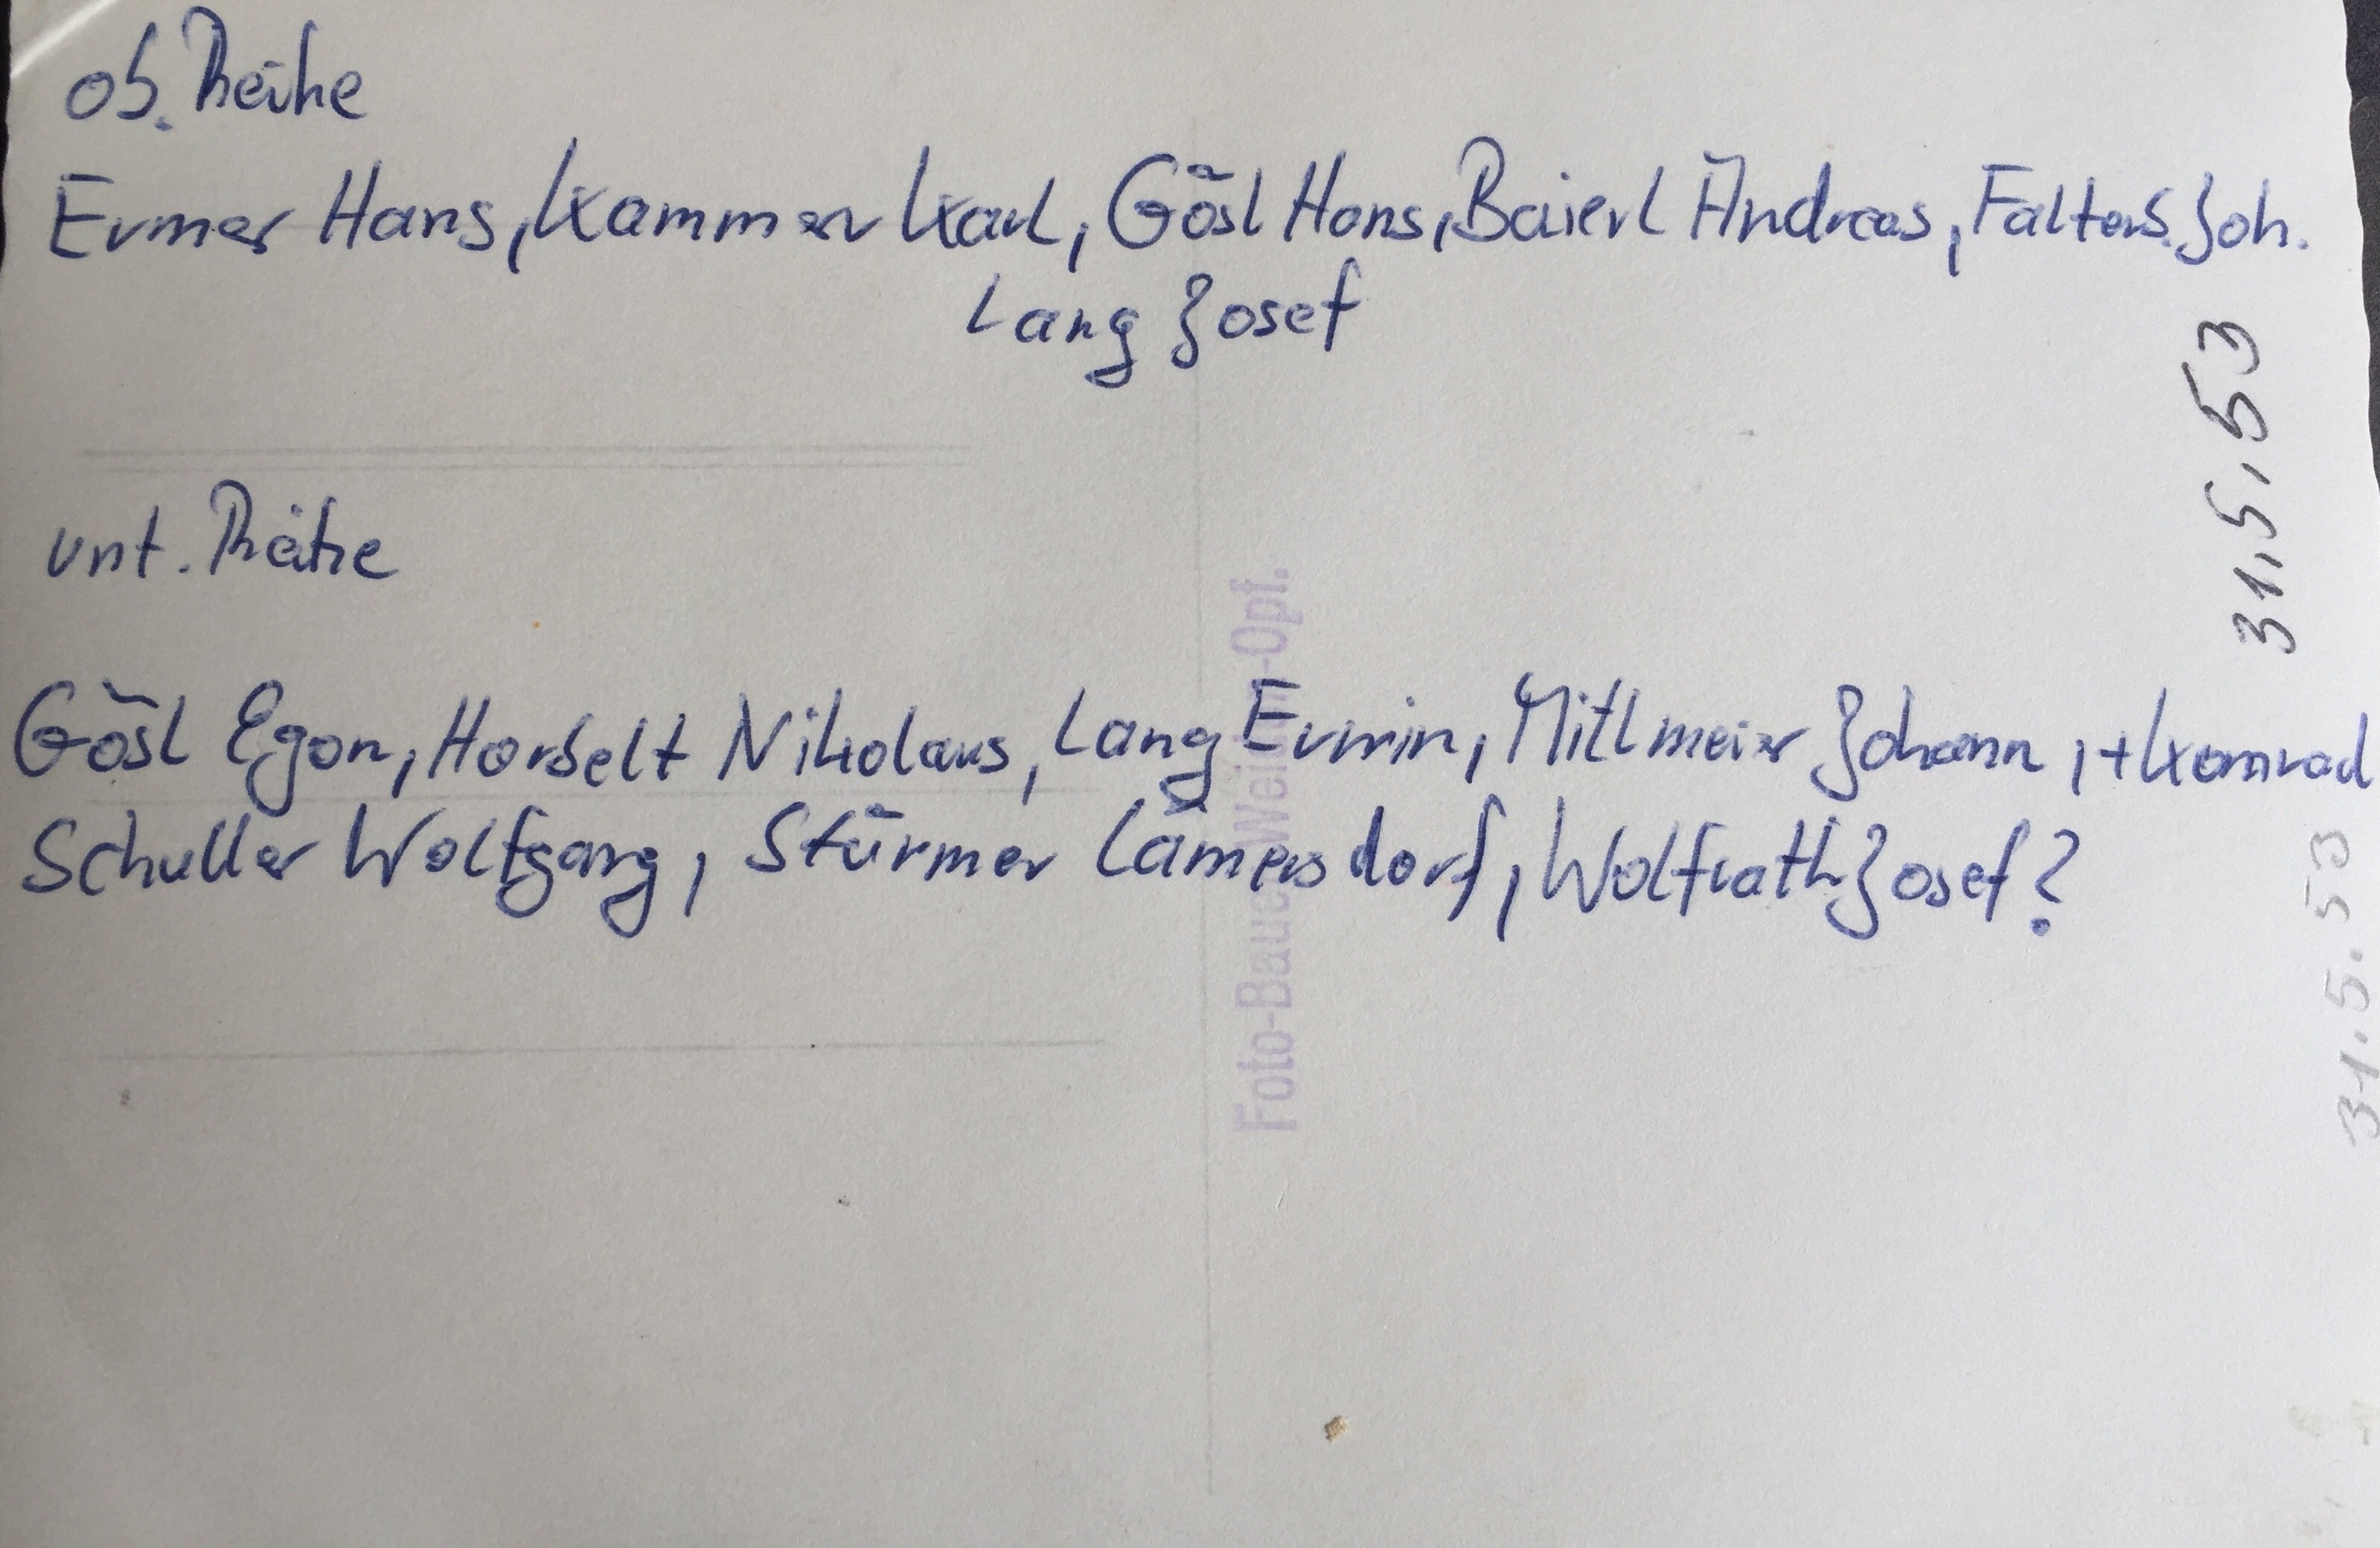 ob. Reihe
Ermer Hans, Kammer Karl, Gösl Hans, Baierl Andreas, Falters. Joh.
Lang Josef
31.5.53
unt. Reihe
Gösl Egon, Horbelt Nikolaus, Lang Erwin, Mitlmeier Johann, + Konrad
Schuller Wolfgang, Stürmer Lämersdorf, Wolfrath Josef?
31.5.53
Foto-Bauer Weiden-Opf.